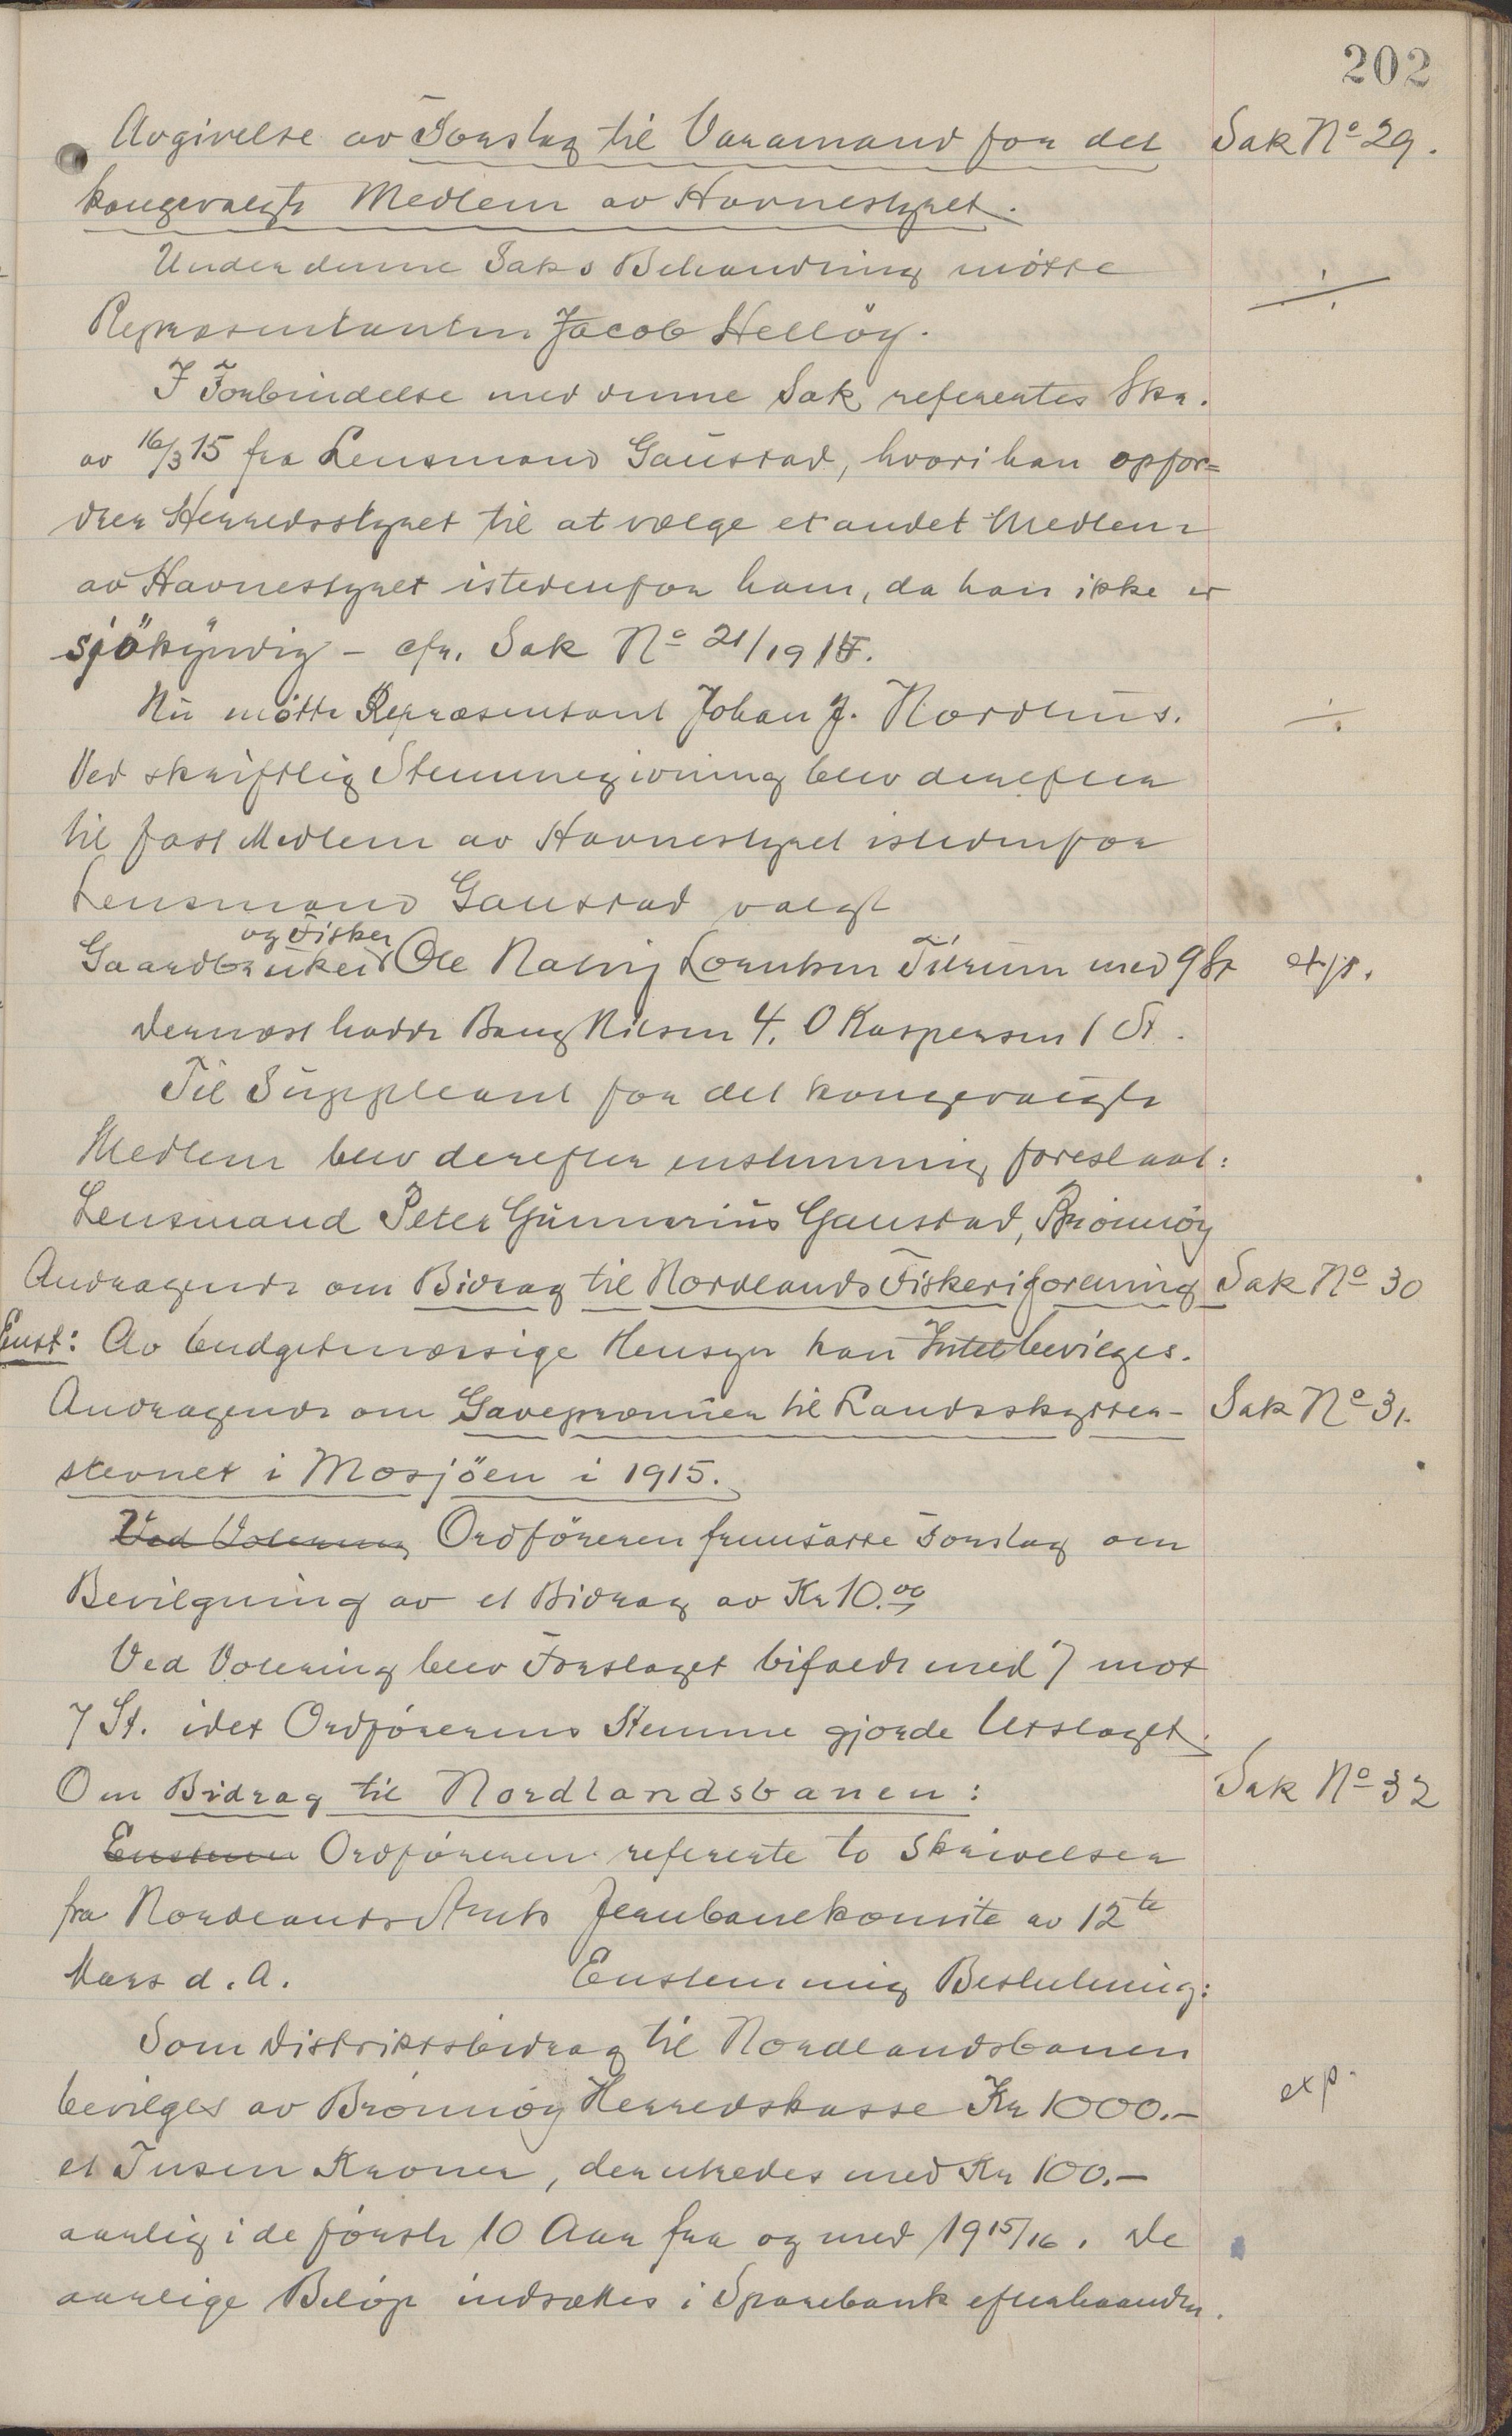 202
Avgivelse av Forslag til Varamand for det Sak No 29.
kongevalgte Medlem av Havnestyret.
Under denne Saks Behandling møtte
Repræsentanten Jacob Helløy.
I Forbindelse med denne Sak referertes Skr.
av 16/3 15 fra Lensmand Gaustad, hvori han opfor=
drer Herredsstyret til at vælge et andet Medlem
av Havnestyret istedenfor ham, da han ikke er
sjökyndig - cfr. Sak No 21/1915.
Nu møtte Repræsentant Johan J. Nordhus.
Ved skriftlig Stemmegivning blev derefter
til fast Medlem av Havnestyret istedenfor
Lensmand Gaustad valgt
og Fisker
Gaardbruker Ole Lorntsen Tilrum med 9 St exp.
dernæst hadde Bang Nilsen 4, O Kaspersen 1 St.
Til Suppleant for det kongevalgte
Medlem blev derefter enstemmig foreslaat:
Lensmand Peter Gunnerius Gaustad, Brönnöy
Andragende om Bidrag til Nordlands Fiskeriforening Sak No 30
Enst: Av budgetmæssige Hensyn kan Intet bevilges.
Andragende om Gavepræmier til Landsskytter- Sak No 31.
stevnet i Mosjöen i 1915.
Ved Votering Ordföreren fremsatte Forslag om
Bevilgning av et Bidrag av Kr 10.00
Ved Votering blev Forslaget bifaldt med 7 mot
7 St. idet Ordförerens Stemme gjorde Utslaget.
Om Bidrag til Nordlandsbanen: Sak No 32
Enstem Ordföreren refererte to Skrivelser
fra Nordlands Amts Jernbanekomite av 12te
Mars d. A. Enstemmig Beslutning:
Som Distriktsbidrag til Nordlandsbanen
bevilges av Brönnöy Herredskasse Kr 1000.- exp.
et Tusen Kroner, der utredes med Kr 100.-
aarlig i de förste 10 Aar fra og med 1915/16. De
aarlige Belöp indsættes i Sparebank efterhaanden.